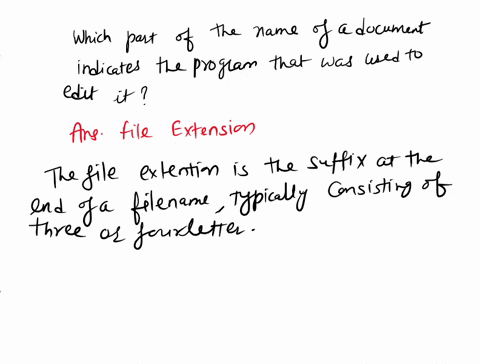 Which part of the name of a document
indicates the program that was used to
edit it?
Ans. file Extension
The file extention is the suffix at the
end of a filename, typically consisting of
three or fourletter.